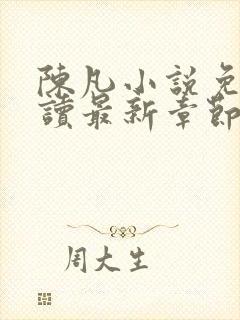 陳凡小説免
讀最新章節
周大生